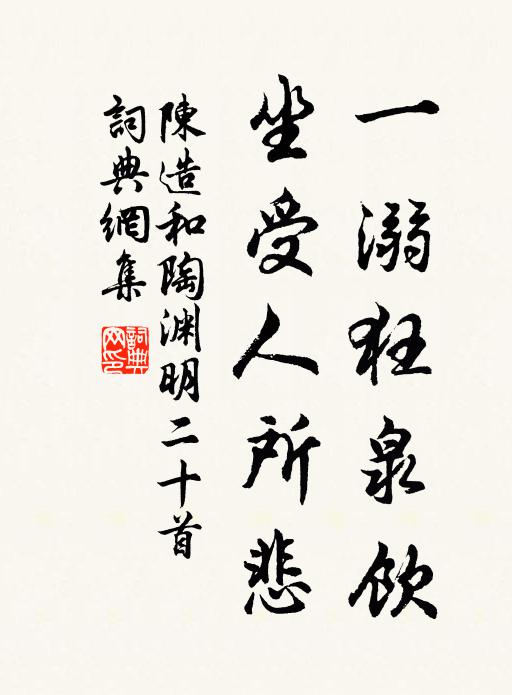 一溺狂泉飲
坐受人所悲
陳造和陶渊明二十首
詞典網集
詞典網印